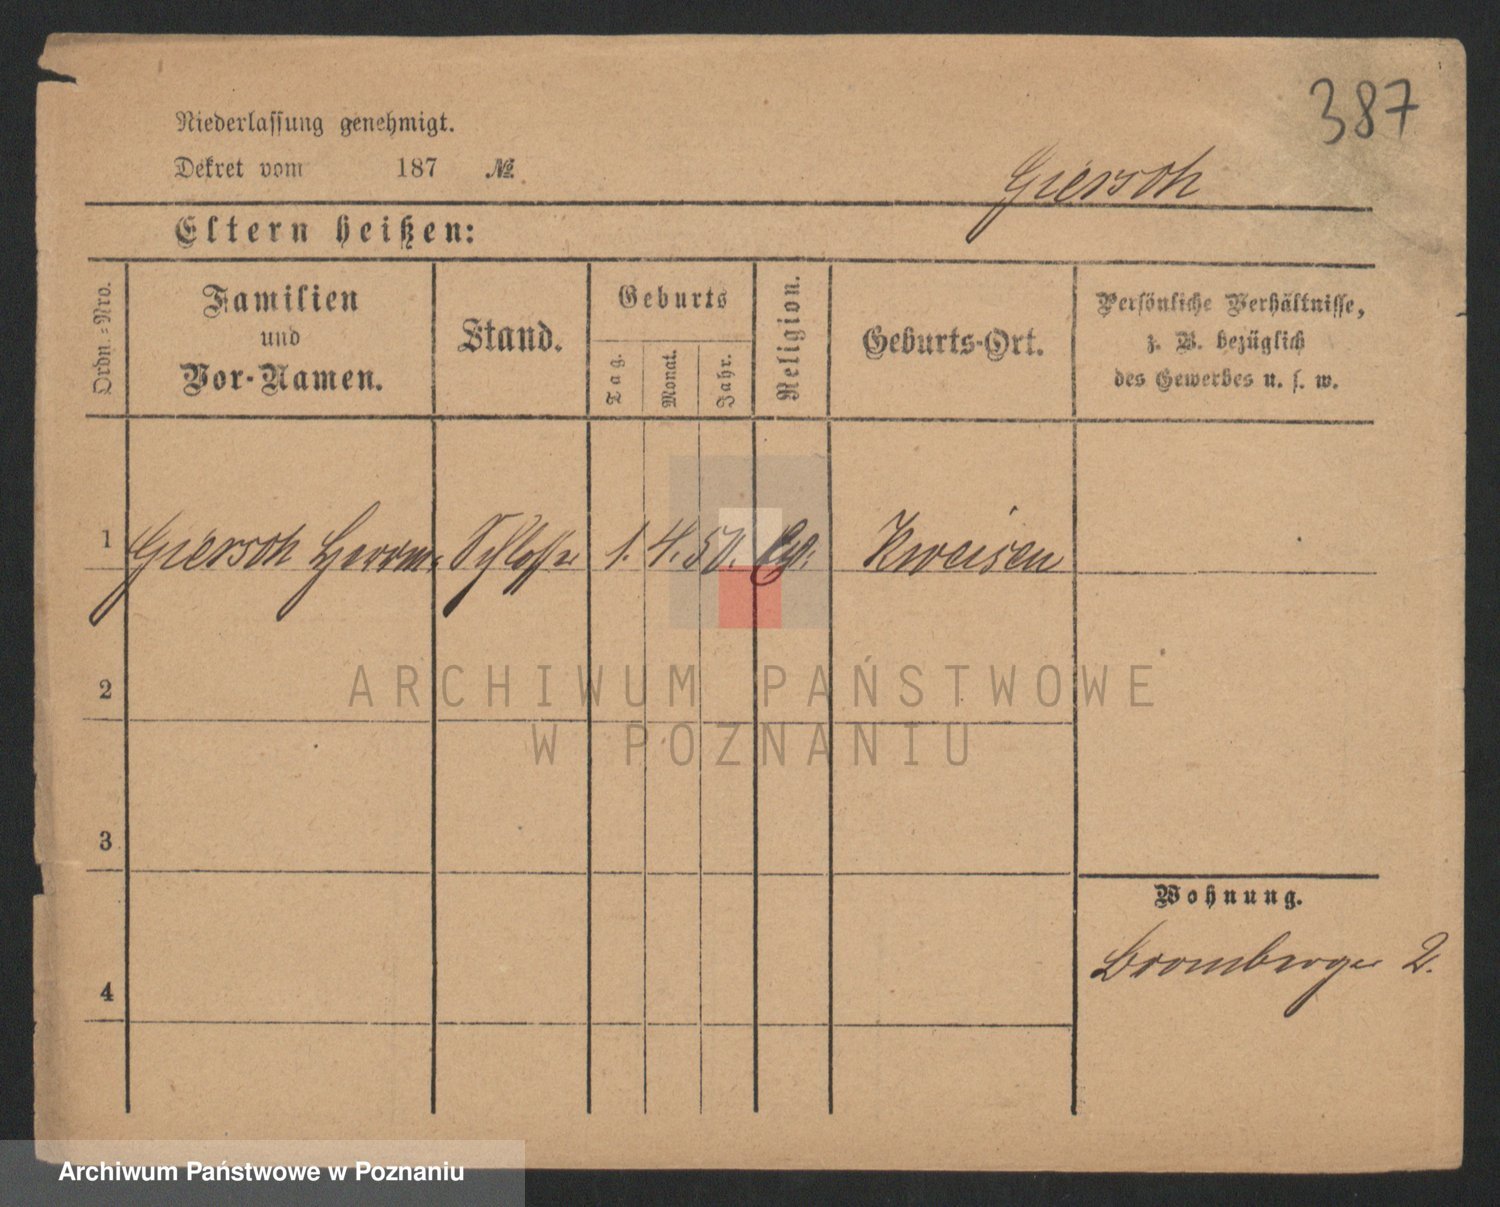 387
Niederlassung genehmigt.
Dekret vom 187 №
Giersch
Eltern heißen:
Ordn.=Nro.
Familien
und
Vor-Namen.
Stand.
Geburts
Tag.
Monat.
Jahr.
Religion.
Geburts-Ort.
Persönliche Verhältnisse,
z. B. bezüglich
des Gewerbes u. s. w.
1 Giersch Herrm. Schlosser 1. 4. 50. Ev. Kweisen
2
3
4
Wohnung.
Bromberger 2.
ARCHIWUM PAŃSTWOWE
W POZNANIU
Archiwum Państwowe w Poznaniu